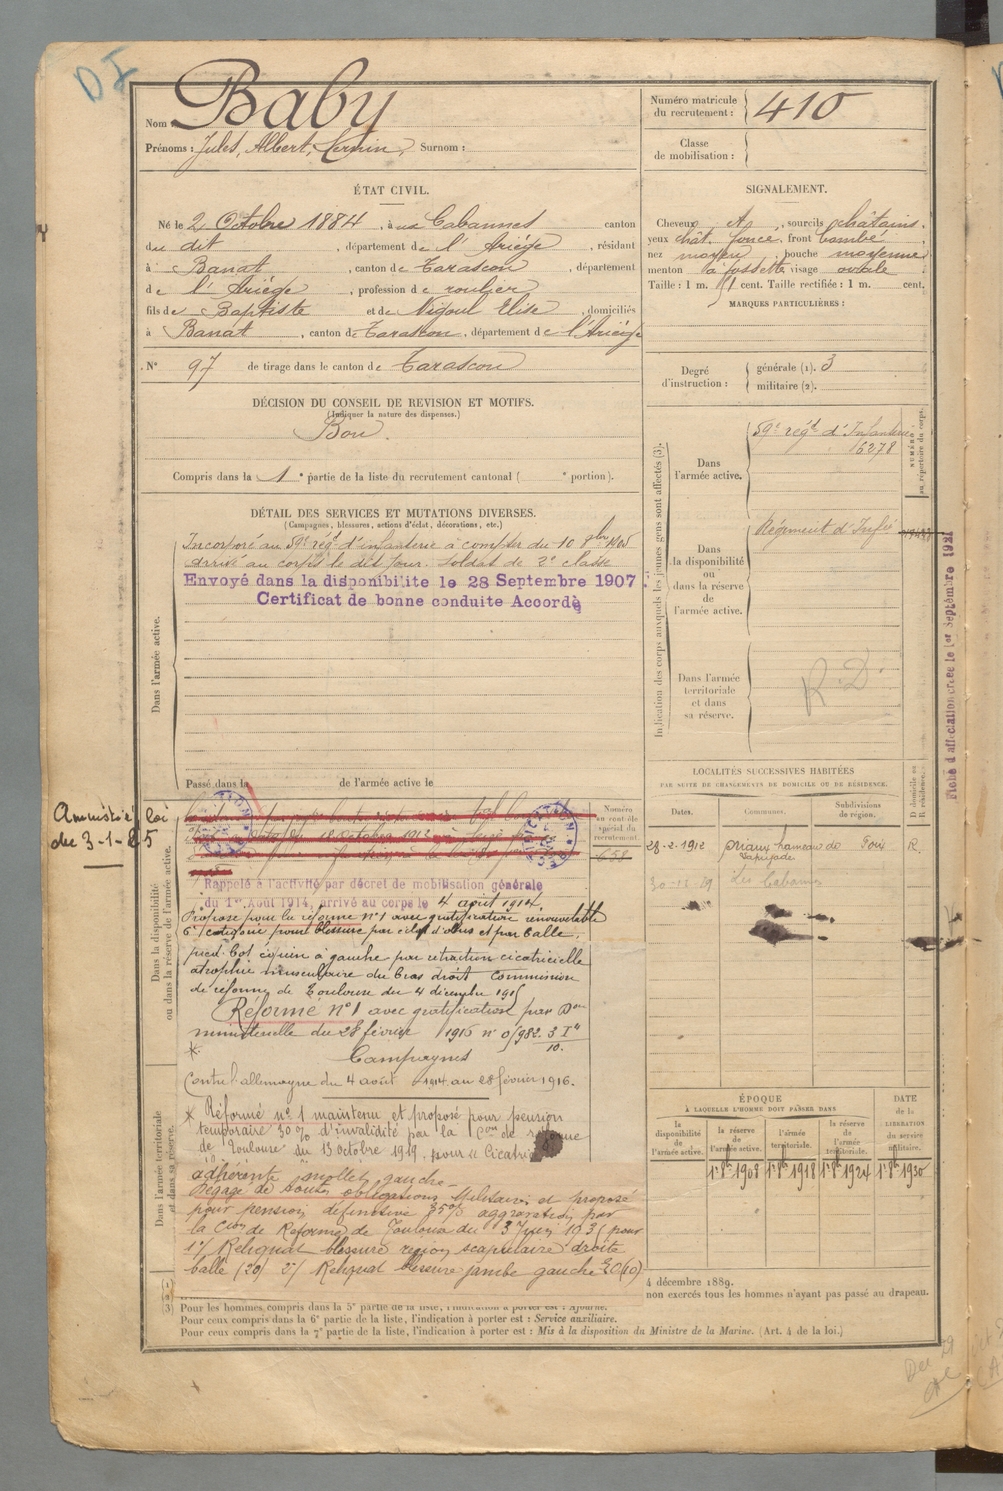 D I
Nom : Baby
Prénoms : Jules, Albert, Sernin, Surnom :
Numéro matricule du recrutement : 410
Classe de mobilisation :
ÉTAT CIVIL.
Né le 2 Octobre 1884, à aux Cabannes canton
du dit, département de l'Ariège, résidant
à Banat, canton de Tarascon, département
de l'Ariège, profession de roulier
fils de Baptiste et de Nigoul Elise, domiciliés
à Banat, canton de Tarascon, département de l'Ariège
N° 97 de tirage dans le canton de Tarascon
SIGNALEMENT.
Cheveux sourcils châtains.
yeux chât. foncé, front bombé
nez moyen bouche moyenne
menton à fossette visage ovale
Taille : 1 m. cent. Taille rectifiée : 1 m. cent.
MARQUES PARTICULIÈRES :
Degré d'instruction : générale (1). 3
militaire (2).
DÉCISION DU CONSEIL DE REVISION ET MOTIFS.
(Indiquer la nature des dispenses.)
Bon.
Compris dans la 1e partie de la liste du recrutement cantonal ( e portion).
DÉTAIL DES SERVICES ET MUTATIONS DIVERSES.
(Campagnes, blessures, actions d'éclat, décorations, etc.)
Dans l'armée active.
Incorporé au 59e régt d'infanterie à compter du 10 8bre 1905
arrivé au corps le dit jour. Soldat de 2e classe
Envoyé dans la disponibilite le 28 Septembre 1907
Certificat de bonne conduite Accordé
Passé dans la de l'armée active le
Indication des corps auxquels les jeunes gens sont affectés (3).
NUMÉRO au répertoire du corps.
Dans l'armée active.
59e régt d'Infanterie
6278
Dans la disponibilité ou dans la réserve de l'armée active.
Régiment d'Infie
Dans l'armée territoriale et dans sa réserve.
R. D.
Fiche d'affectation créée le 1er Septembre 1921
Amnistié loi
du 3-1-25
Dans la disponibilité ou dans la réserve de l'armée active.
Numéro au contrôle spécial du recrutement.
658
18 Octobre 1912
Rappelé à l'activité par décret de mobilisation générale
du 1er Août 1914, arrivé au corps le 4 août 1914.
Proposé pour la réforme n°1 avec gratification renouvelable
6e catégorie pour blessure par éclat d'obus et par balle,
pied bot équin à gauche par rétraction cicatricielle
atrophie musculaire du bras droit Commission
de réforme de Toulouse du 4 décembre 1915
Réformé n°1 avec gratification par Don
ministérielle du 28 février 1916 n° 0/982. 3 Iu
10.
Campagnes
Contre l'allemagne du 4 août 1914 au 28 février 1916.
Dans l'armée territoriale et dans sa réserve.
* Réformé n° 1 maintenu et proposé pour pension
temporaire 30% d'invalidité par la Con de réforme
de Toulouse du 13 octobre 1919, pour "Cicatrice
adhérente mollet gauche
Dégagé de toutes obligations Militaires et proposé
pour pension définitive 35% aggravation par
la Cion de Réforme de Toulouse du 3 Juin 1931 pour
1°/ Reliquat blessure région scapulaire droite
balle (20) 2°/ Reliquat blessure jambe gauche 20 (10)
LOCALITÉS SUCCESSIVES HABITÉES
PAR SUITE DE CHANGEMENTS DE DOMICILE OU DE RÉSIDENCE.
Dates. Communes. Subdivisions de région. D domicile ou R résidence.
28-2-1912 Foix R.
Les Cabannes
ÉPOQUE
À LAQUELLE L'HOMME DOIT PASSER DANS
DATE de la LIBÉRATION du service militaire.
la disponibilité de l'armée active. la réserve de l'armée active. l'armée territoriale. la réserve de l'armée territoriale.
1r 8b 1908 1r 8b 1918 1r 8b 1924 1r 8b 1930
4 décembre 1889.
non exercés tous les hommes n'ayant pas passé au drapeau.
(3) Pour les hommes compris dans la 5e partie de la liste, l'indication à porter est : Ajourné.
Pour ceux compris dans la 6e partie de la liste, l'indication à porter est : Service auxiliaire.
Pour ceux compris dans la 7e partie de la liste, l'indication à porter est : Mis à la disposition du Ministre de la Marine. (Art. 4 de la loi.)